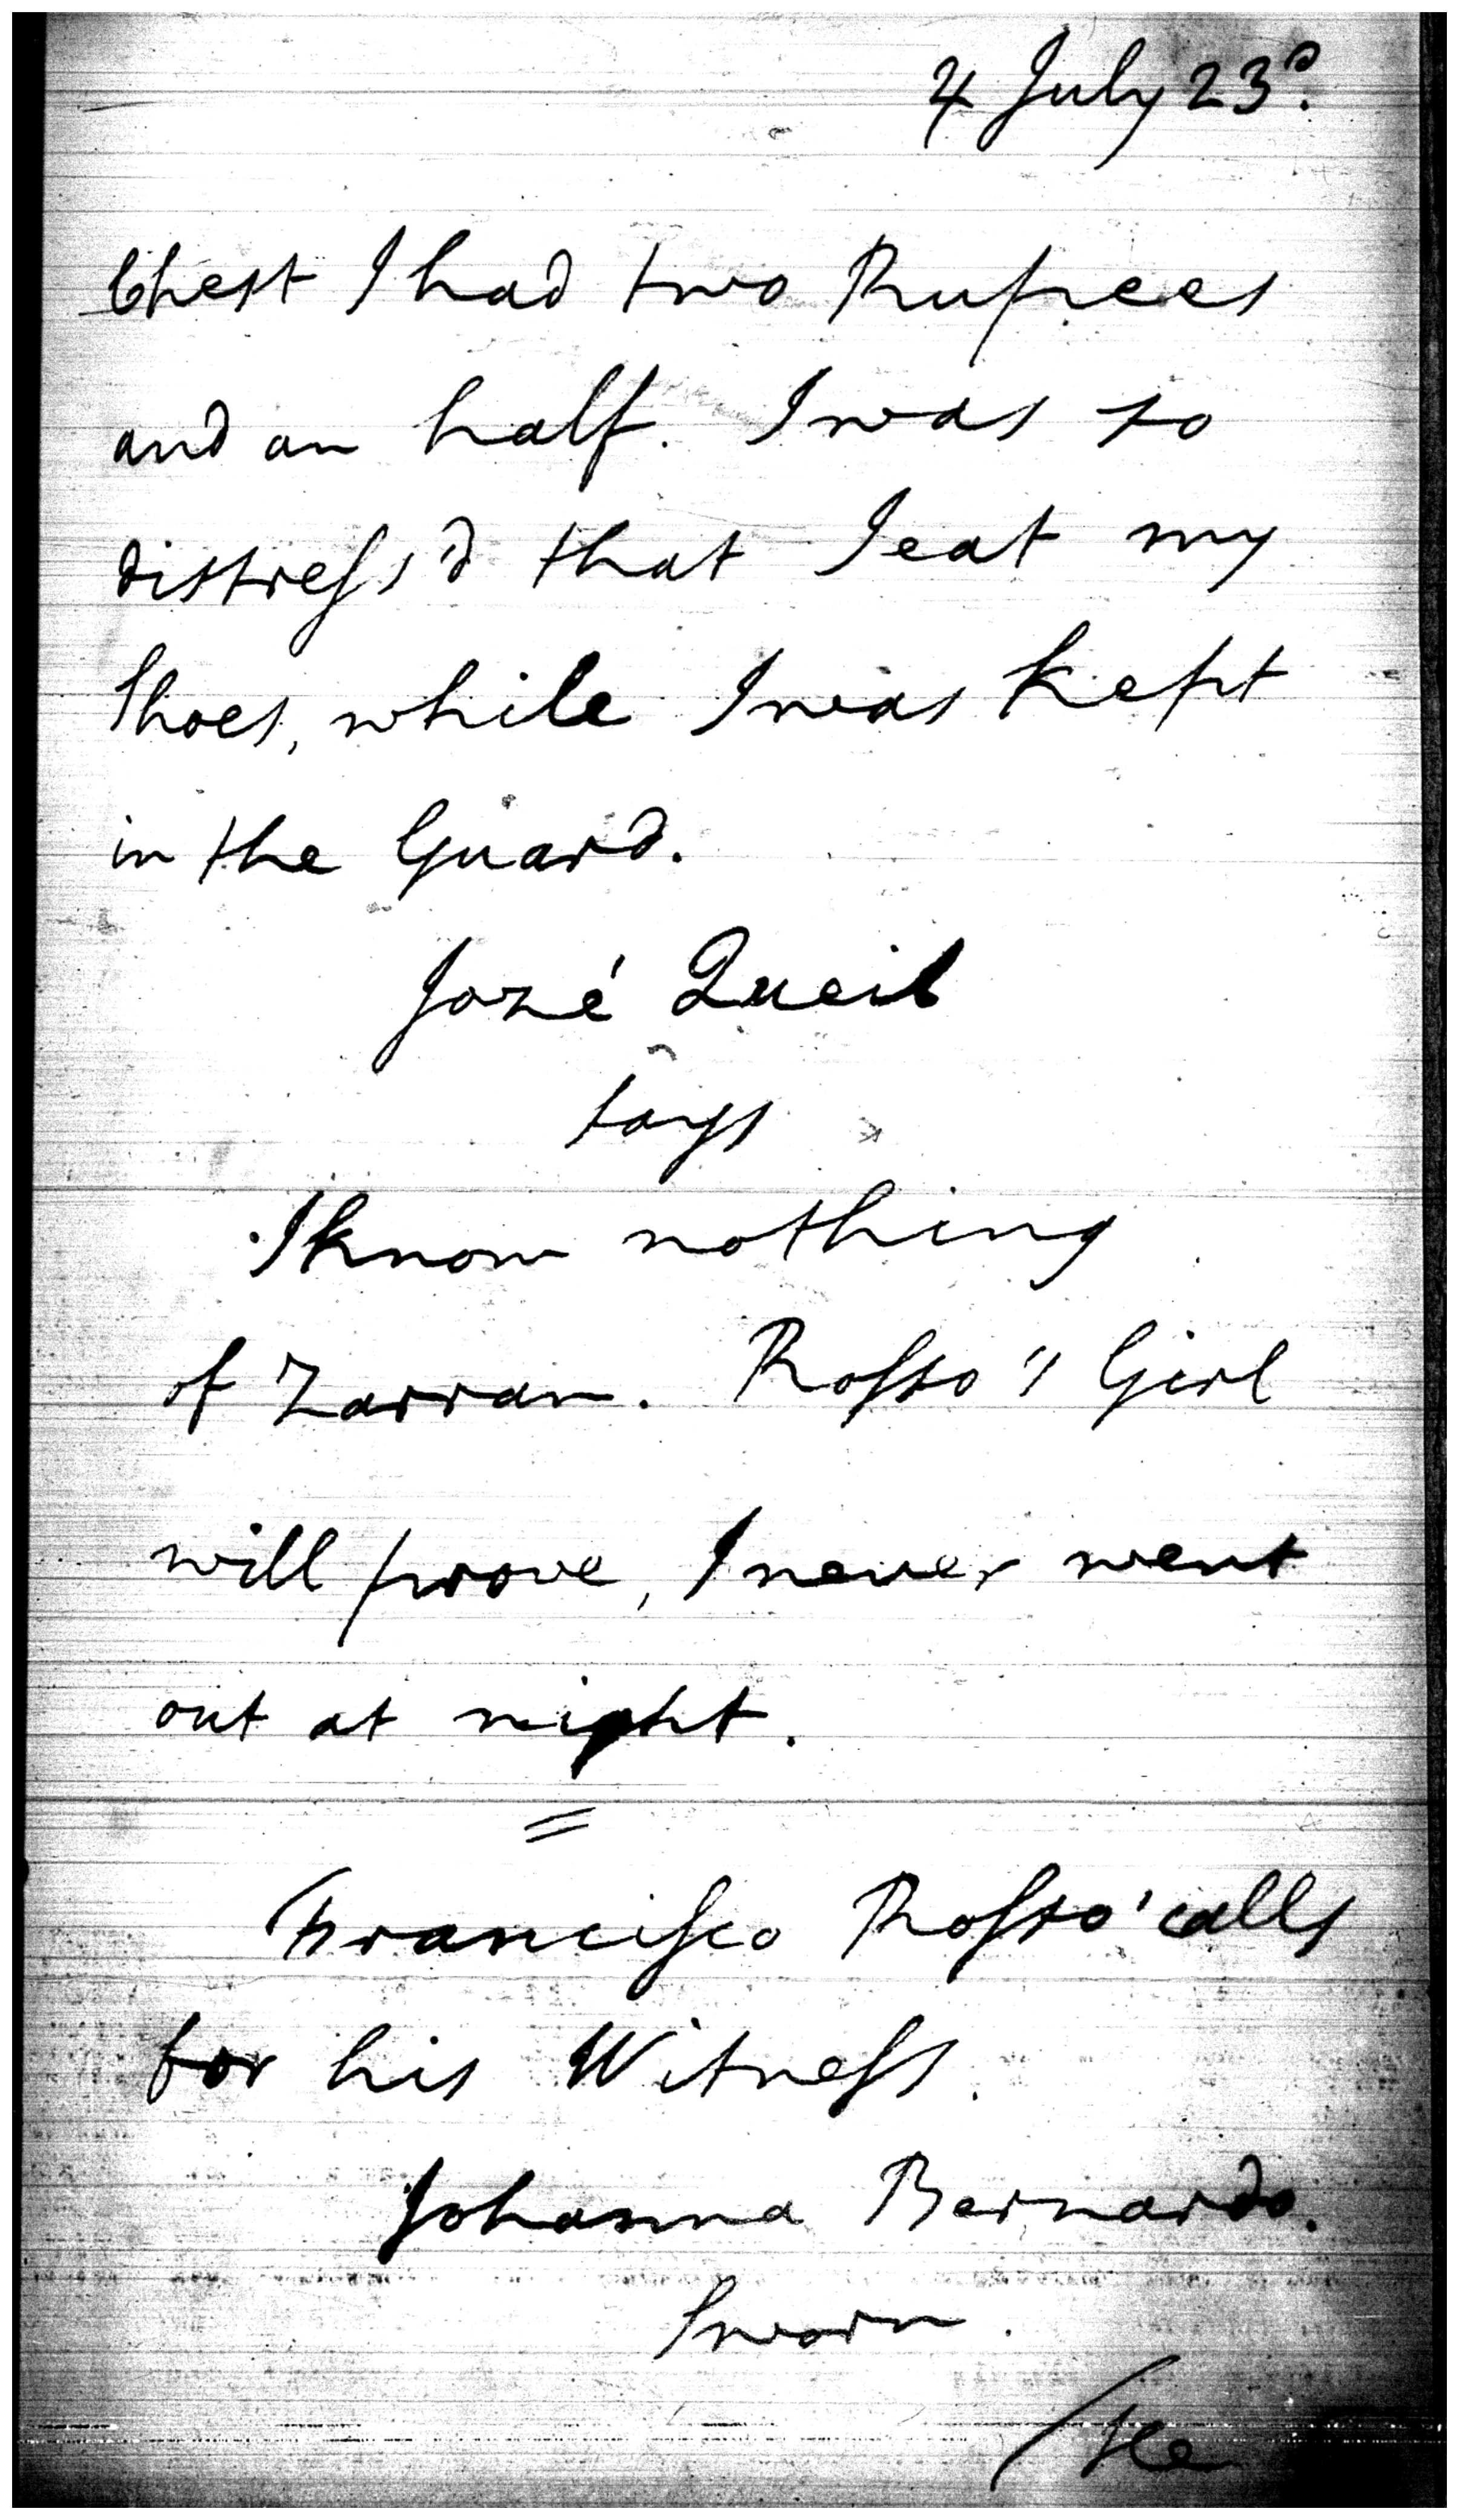 4 July 23d.
Chest I had two Rupees
and an half. I was so
distress'd that I eat my
Shoes, while I was kept
in the Guard.
José Queil
says
I know nothing
of Zarran. Rosso's Girl
will prove, I never went
out at night.
=
Francisco Rosso calls
for his Witness.
Johanna Bernardo.
Sworn.
He